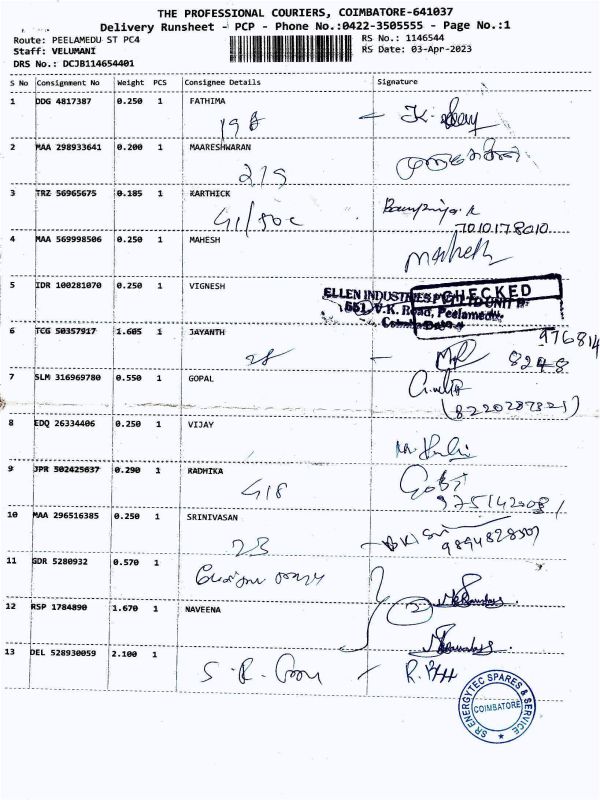 THE PROFESSIONAL COURIERS, COIMBATORE-641037
Delivery Runsheet - PCP - Phone No.:0422-3505555 - Page No.:1
Route: PEELAMEDU ST PC4 RS No.: 1146544
Staff: VELUMANI RS Date: 03-Apr-2023
DRS No.: DCJB114654401
S No Consignment No Weight PCS Consignee Details Signature
1 DDG 4817387 0.250 1 FATHIMA
2 MAA 298933641 0.200 1 MAARESHWARAN
219
3 TRZ 56965675 0.185 1 KARTHICK
7010178010
4 MAA 569998506 0.250 1 MAHESH
Mahesh
5 IDR 100281070 0.250 1 VIGNESH
CHECKED
ELLEN INDUSTRIES
551, V.K. Road, Peelamedu,
6 TCG 50357917 1.605 1 JAYANTH
28
976814
8248
7 SLM 316969780 0.550 1 GOPAL
(8220287321)
8 EDQ 26334406 0.250 1 VIJAY
9 JPR 502425637 0.290 1 RADHIKA
418
GOBI
9751420081
10 MAA 296516385 0.250 1 SRINIVASAN
23
9894828307
11 GDR 5280932 0.570 1
12 RSP 1784890 1.670 1 NAVEENA
2
13 DEL 528930059 2.100 1
S.R.
SR ENERGYTEC SPARES & SERVICE
COIMBATORE